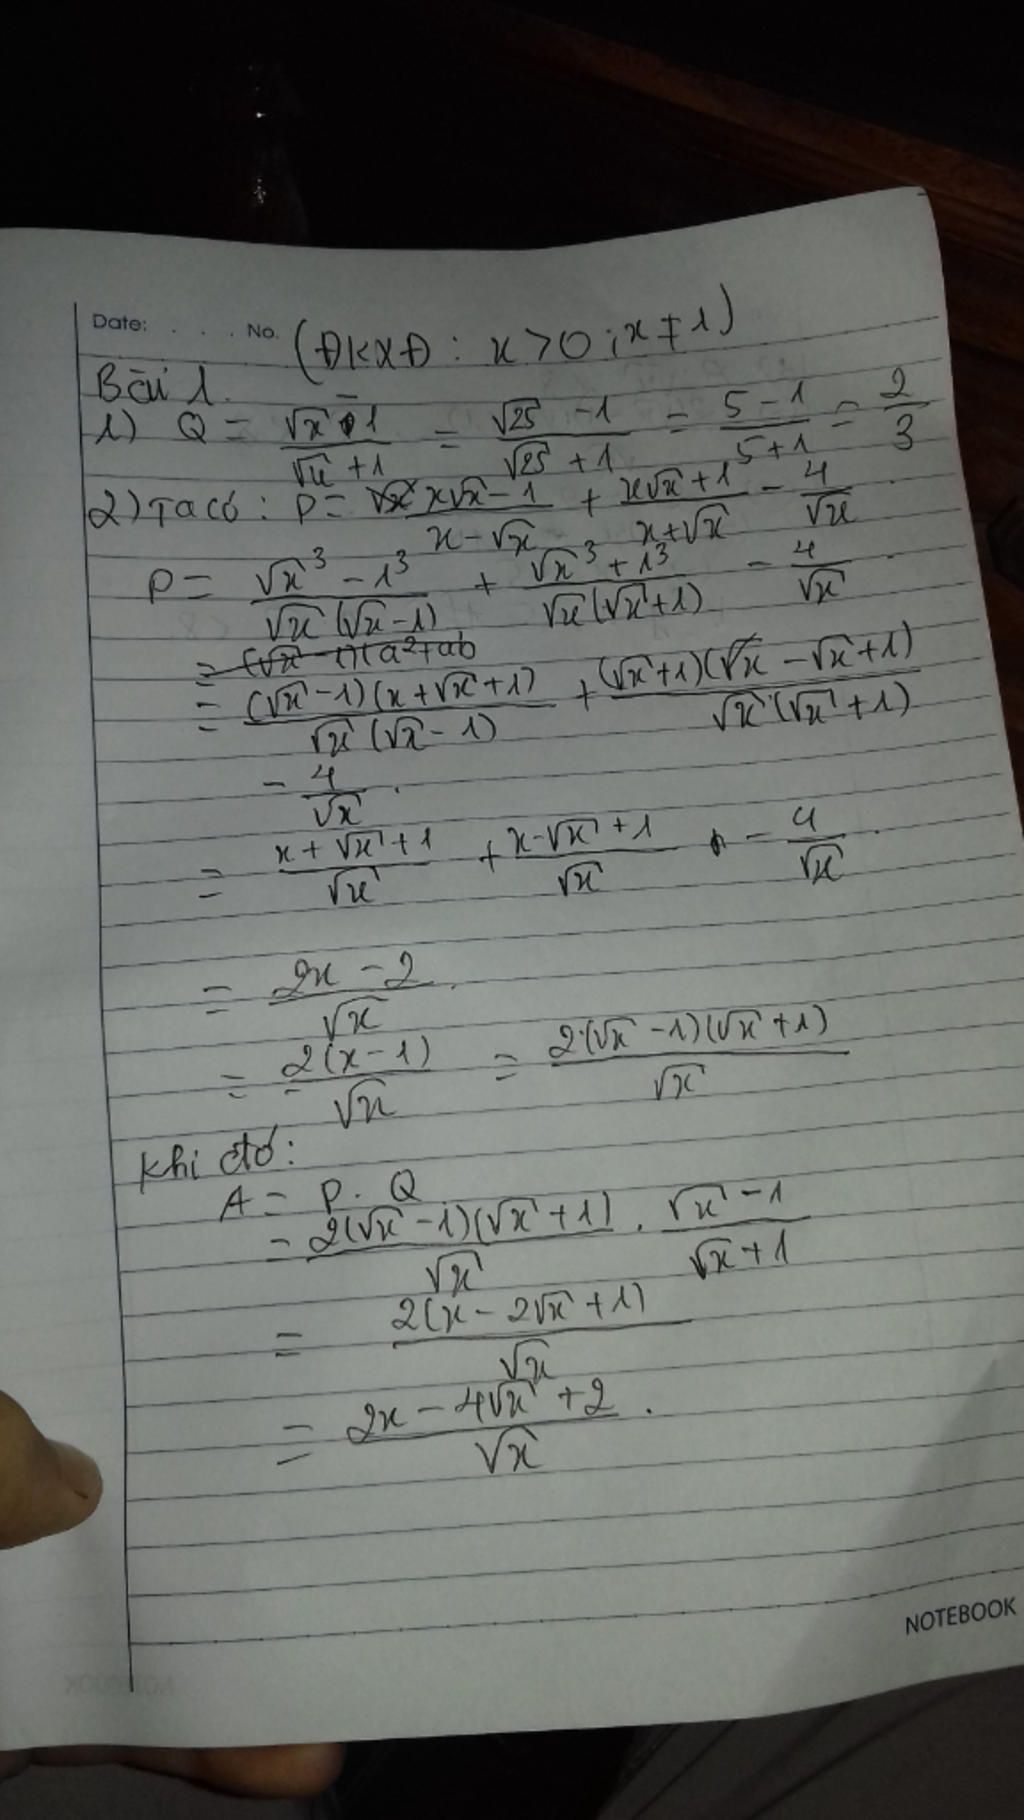 Date: . . . . No. (ĐKXĐ : x > 0 ; x ≠ 1)
Bài 1.
1) Q = (√x - 1)/(√x + 1) = (√25 - 1)/(√25 + 1) = (5 - 1)/(5 + 1) = 2/3
2) Ta có : P = (x√x - 1)/(x - √x) + (x√x + 1)/(x + √x) - 4/√x .
P = (√x³ - 1³)/(√x (√x - 1)) + (√x³ + 1³)/(√x (√x + 1)) - 4/√x .
= (√x - 1)(a² + ab
= (√x - 1)(x + √x + 1)/(√x (√x - 1)) + (√x + 1)(x - √x + 1)/(√x (√x + 1))
- 4/√x .
= (x + √x + 1)/√x + (x - √x + 1)/√x - 4/√x .
= (2x - 2)/√x .
= 2(x - 1)/√x = 2(√x - 1)(√x + 1)/√x
Khi đó :
A = P . Q
= 2(√x - 1)(√x + 1)/√x . (√x - 1)/(√x + 1)
= 2(x - 2√x + 1)/√x
= (2x - 4√x + 2)/√x .
NOTEBOOK